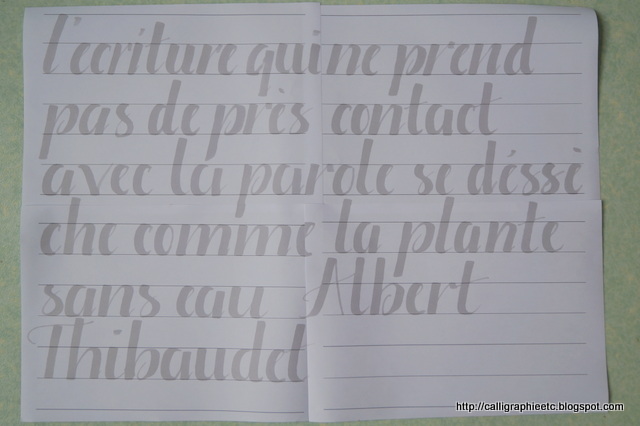 l'écriture qui ne prend
pas de près contact
avec la parole se déssè
che comme la plante
sans eau Albert
Thibaudd
http://calligraphieetc.blogspot.com